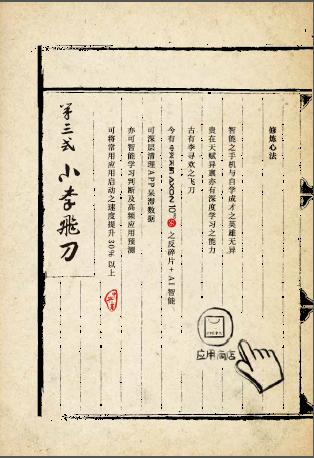 修炼心法
智能之手机与自学成才之英雄无异
贵在天赋异禀亦有深度学习之能力
古有李寻欢之飞刀
今有中兴天机 AXON 10 Pro 5G 之反碎片+AI智能
可深层清理APP呆滞数据
亦可智能学习判断及高频应用预测
可将常用应用启动之速度提升30%以上
第三式 小李飛刀
应用商店